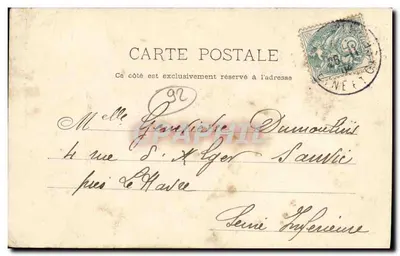 CARTE POSTALE
Ce côté est exclusivement réservé à l'adresse
92
Mlle Dumoulins
4 rue d'Alger Sanvic
près Le Havre
Seine Inférieure